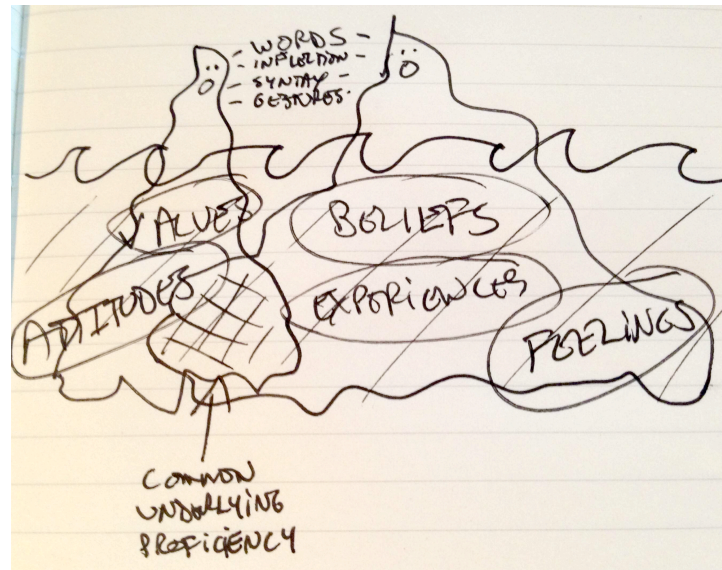 - WORDS -
- INFLECTION -
- SYNTAX -
- GESTURES -
VALUES
BELIEFS
ATTITUDES
EXPERIENCES
FEELINGS
COMMON
UNDERLYING
PROFICIENCY